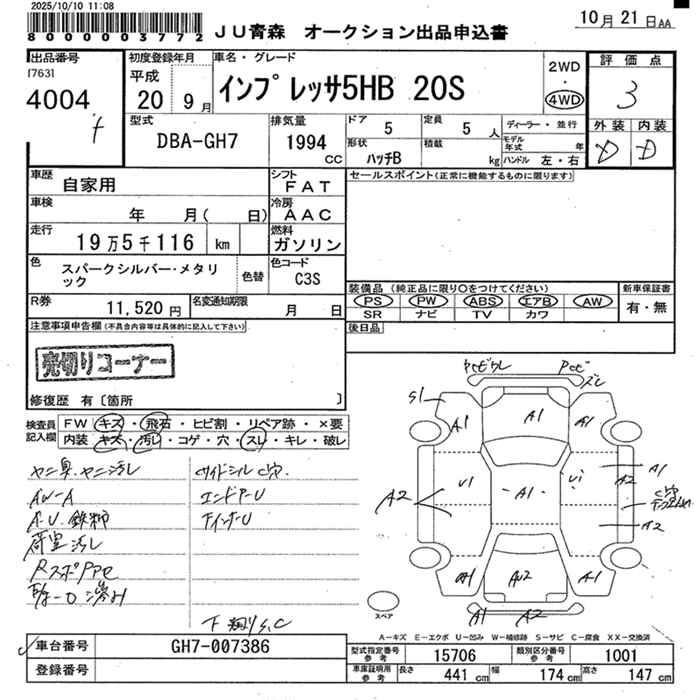 2025/10/10 11:08
8000003772
JU青森 オークション出品申込書
10月21日AA
出品番号
17631
4004
初度登録年月
平成
20 9月
車名・グレード
インプレッサ5HB 20S
2WD
・
4WD
評価点
3
外装 内装
D D
型式
DBA-GH7
排気量
1994
CC
ドア 5
形状 ハッチB
定員 5 人
積載 kg
ディーラー・並行
モデル年式 年
ハンドル 左・右
車歴
自家用
シフト
FAT
セールスポイント(正常に機能するものに限ります)
車検
年 月( 日)
冷房
AAC
走行
19万5千116 km
燃料
ガソリン
色
スパークシルバー・メタリック
色替
色コード
C3S
装備品 (純正品に限り○をつけてください)
PS PW ABS エアB AW
SR ナビ TV カワ
新車保証書
有・無
R券
11,520円
名変通知期限
月 日
後日品
注意事項申告欄(不具合内容等は具体的に記入して下さい)
売切りコーナー
修復歴 有〔箇所 〕
検査員
記入欄
FW キズ・飛石・ヒビ割・リペア跡・×要
内装 キズ・汚レ・コゲ・穴・スレ・キレ・破レ
ヤニ臭、ヤニ汚レ
サイドシルC穴
AW-A
エンドアーU
インナーU
荷室汚レ
下廻りS、C
S1 A1 A1 A1
U1 A1 U1 A1
A2 A2
C穴
A2
A1 AU2 A1
A1 A2
スペア
A-キズ E-エクボ U-凹み W-補修跡 S-サビ C-腐食 XX-交換済
車台番号
GH7-007386
登録番号
型式指定番号
参考
15706
類別区分番号
参考
1001
車庫証明用
参考
長さ 441 cm 幅 174 cm 高さ 147 cm